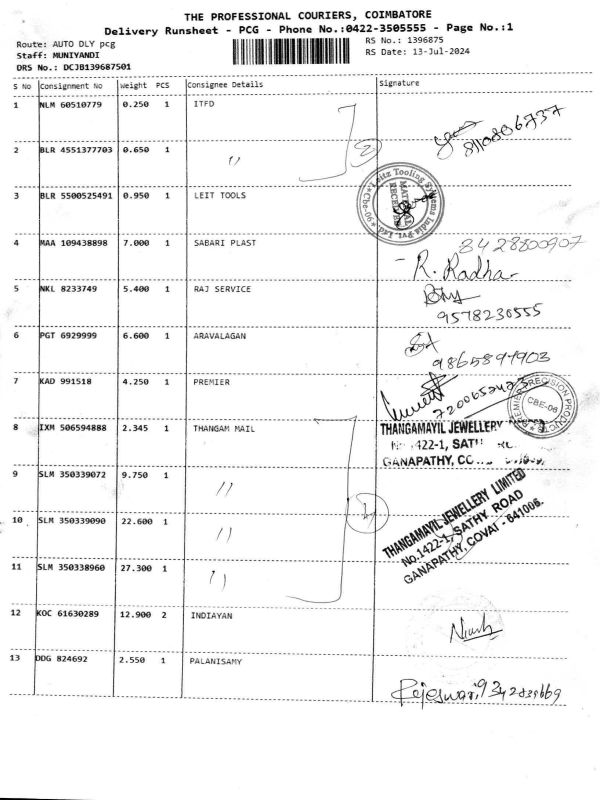 THE PROFESSIONAL COURIERS, COIMBATORE
Delivery Runsheet - PCG - Phone No.:0422-3505555 - Page No.:1
Route: AUTO DLY pcg
RS No.: 1396875
Staff: MUNIYANDI
RS Date: 13-Jul-2024
DRS No.: DCJB139687501
S No Consignment No Weight PCS Consignee Details Signature
1 NLM 60510779 0.250 1 ITFD
8110806737
2 BLR 4551377703 0.650 1 "
3 BLR 5500525491 0.950 1 LEIT TOOLS
Leitz Tooling Systems India Pvt. Ltd. *Cbe-90*
MATERIAL RECEIVED
4 MAA 109438898 7.000 1 SABARI PLAST
8428800907
R. Radha
5 NKL 8233749 5.400 1 RAJ SERVICE
9578230555
6 PGT 6929999 6.600 1 ARAVALAGAN
9865897903
7 KAD 991518 4.250 1 PREMIER
7200652423
PREMIER PRECISION PRODUCTS
CBE-06
8 IXM 506594888 2.345 1 THANGAM MAIL
THANGAMAYIL JEWELLERY
No. 1422-1, SATH
GANAPATHY,
9 SLM 350339072 9.750 1 "
10 SLM 350339090 22.600 1 "
THANGAMAYIL JEWELLERY LIMITED
No.1422-1, SATHY ROAD
GANAPATHY, COVAI - 641006.
11 SLM 350338960 27.300 1 "
12 KOC 61630289 12.900 2 INDIAYAN
13 DDG 824692 2.550 1 PALANISAMY
Rajeswari 9342839669